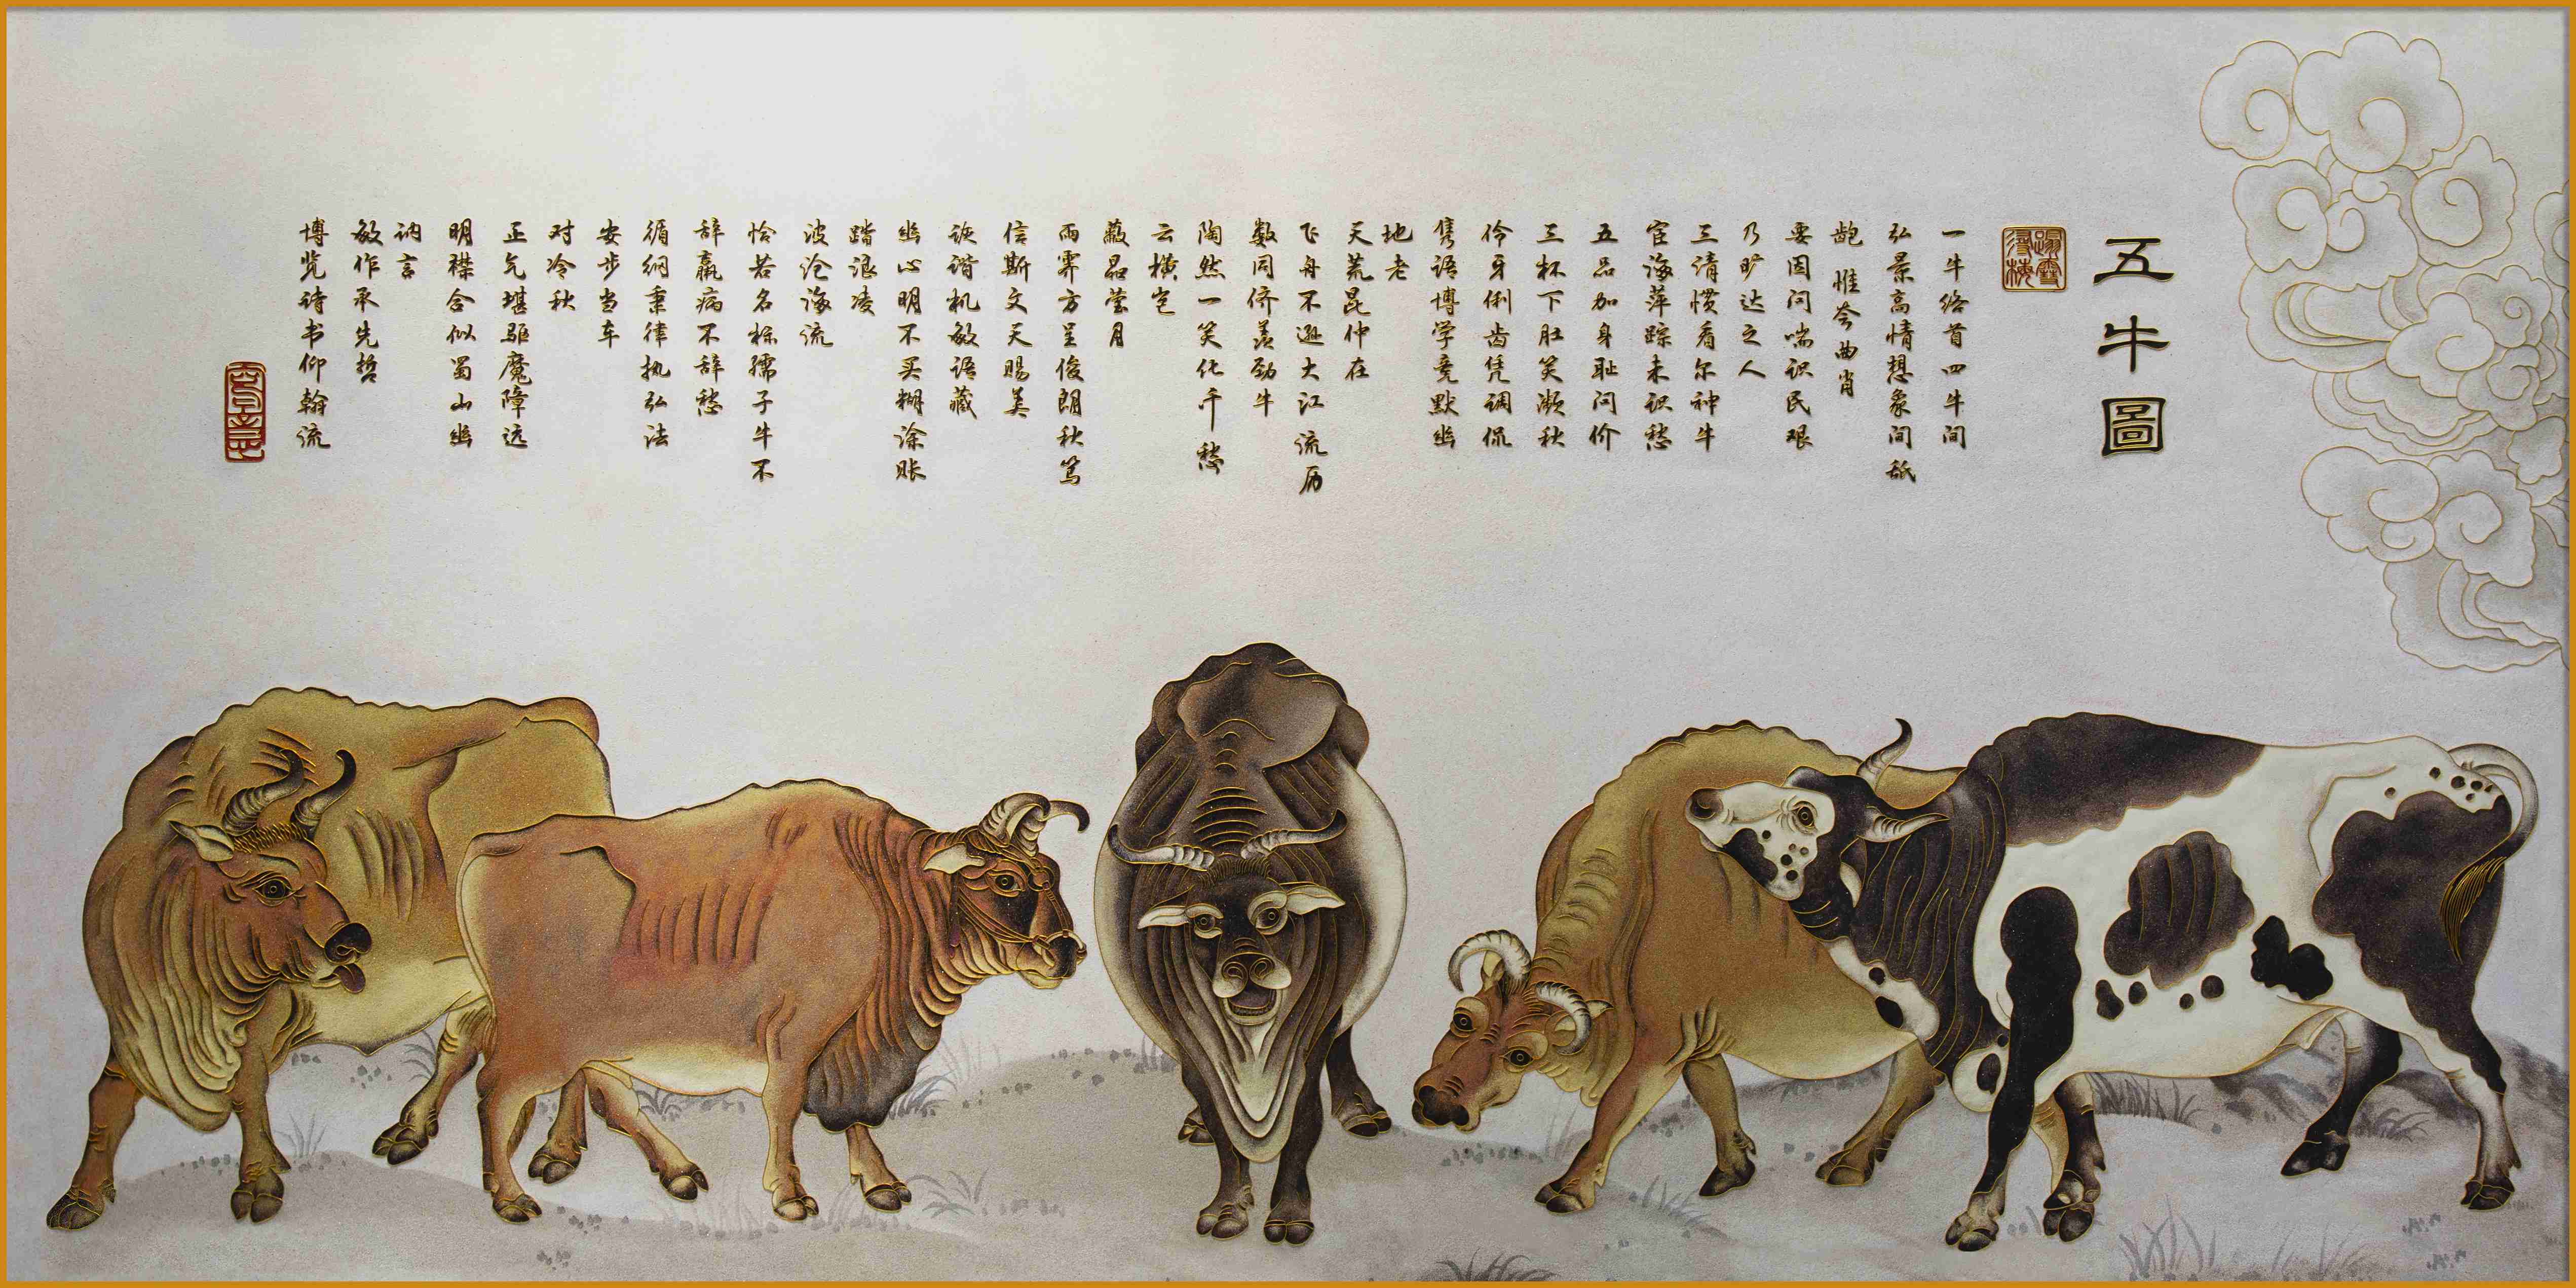 五牛圖
踏雪尋梅
一牛络首四牛间
弘景高情想象间舐
龁惟夸曲肖
要因问喘识民艰
乃旷达之人
三清惯看尔神牛
宦海萍踪未识愁
五品加身耻问价
三杯下肚笑濒秋
伶牙俐齿凭调侃
隽语博学竞默幽
地老
天荒昆仲在
飞舟不逊大江流历
数同侪羡劲牛
陶然一笑化千愁
云横岂
蔽品莹月
雨霁方呈俊朗秋笃
信斯文天赐美
诙谐机敏语藏
幽心明不买糊涂账
踏浪凌
波沧海流
恰若名标孺子牛不
辞羸病不辞愁
循纲秉律执弘法
安步当车
对冷秋
正气堪驱魔障远
明襟合似蜀山幽
讷言
敏作承先哲
博览诗书仰翰流